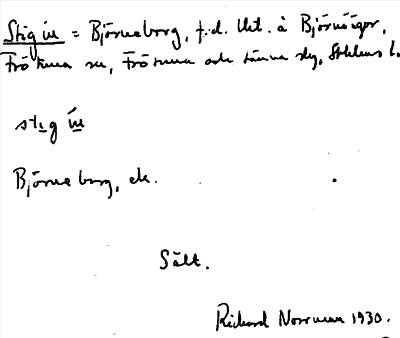 Stig in = Björneborg, f.d. Utl. å Björnöägor,
Frötuna sn, Frötuna och Länna slg, Sthlms l.
stig in
Björneborg, ek.
Sält.
Rickard Norrman 1930.